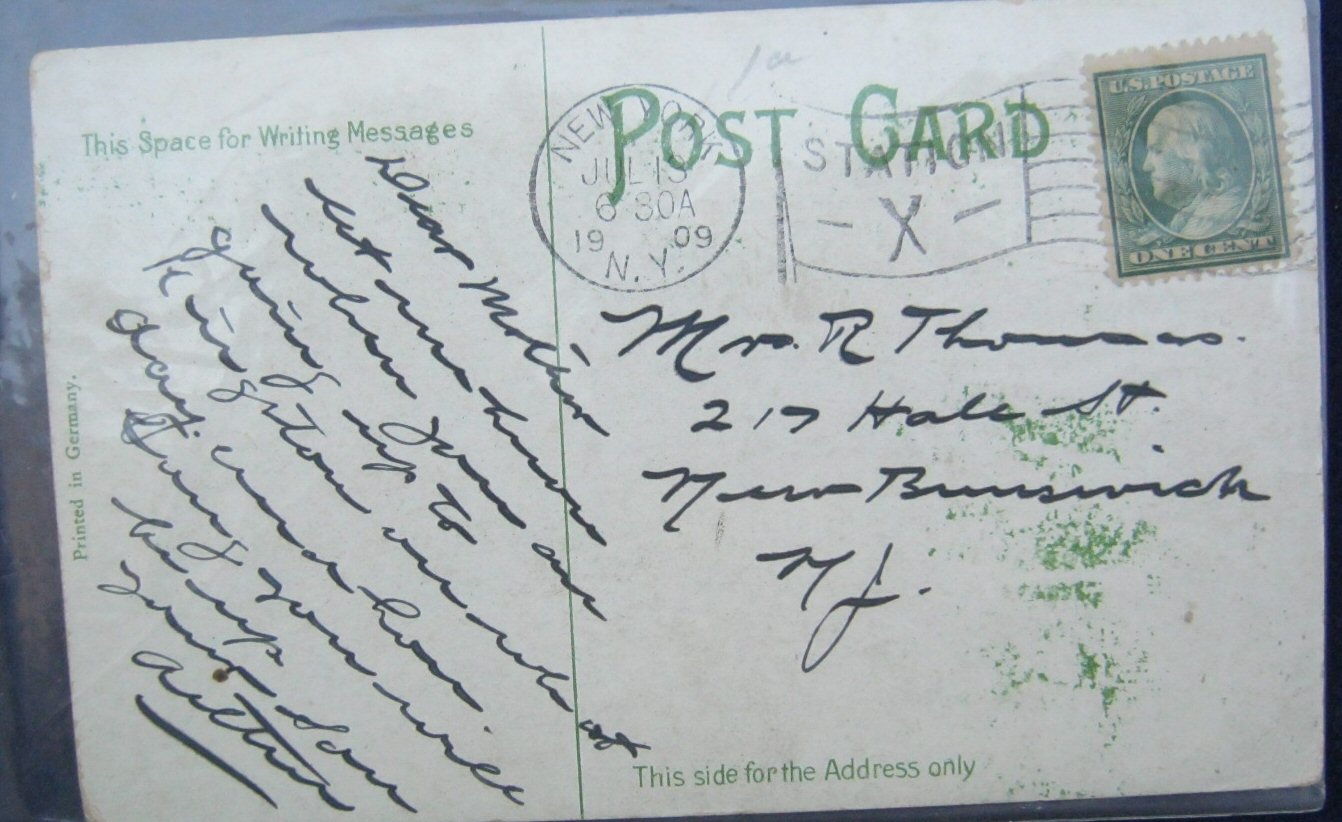 This Space for Writing Messages
Dear Mother
let me know
when you are
going up to
Kingston on what
day and how
long you will
be up
your Son
Arthur
Printed in Germany.
POST CARD
NEW YORK
JUL 13
6 30A
19 09
N.Y.
STATION
- X -
U.S. POSTAGE
ONE CENT
Mrs. R Thomas.
217 Hale St.
New Brunswick
N J.
This side for the Address only